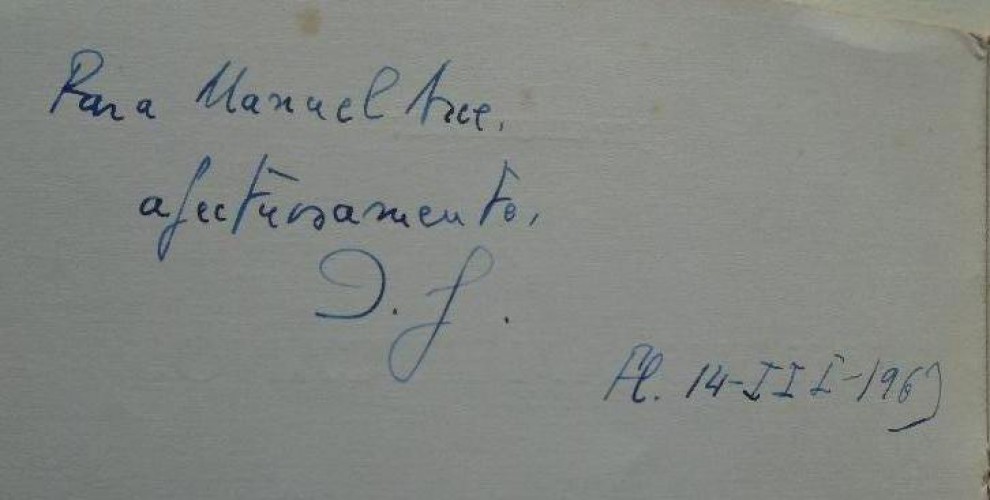 Para Manuel Arce,
afectuosamente,
J. G.
14-III-196